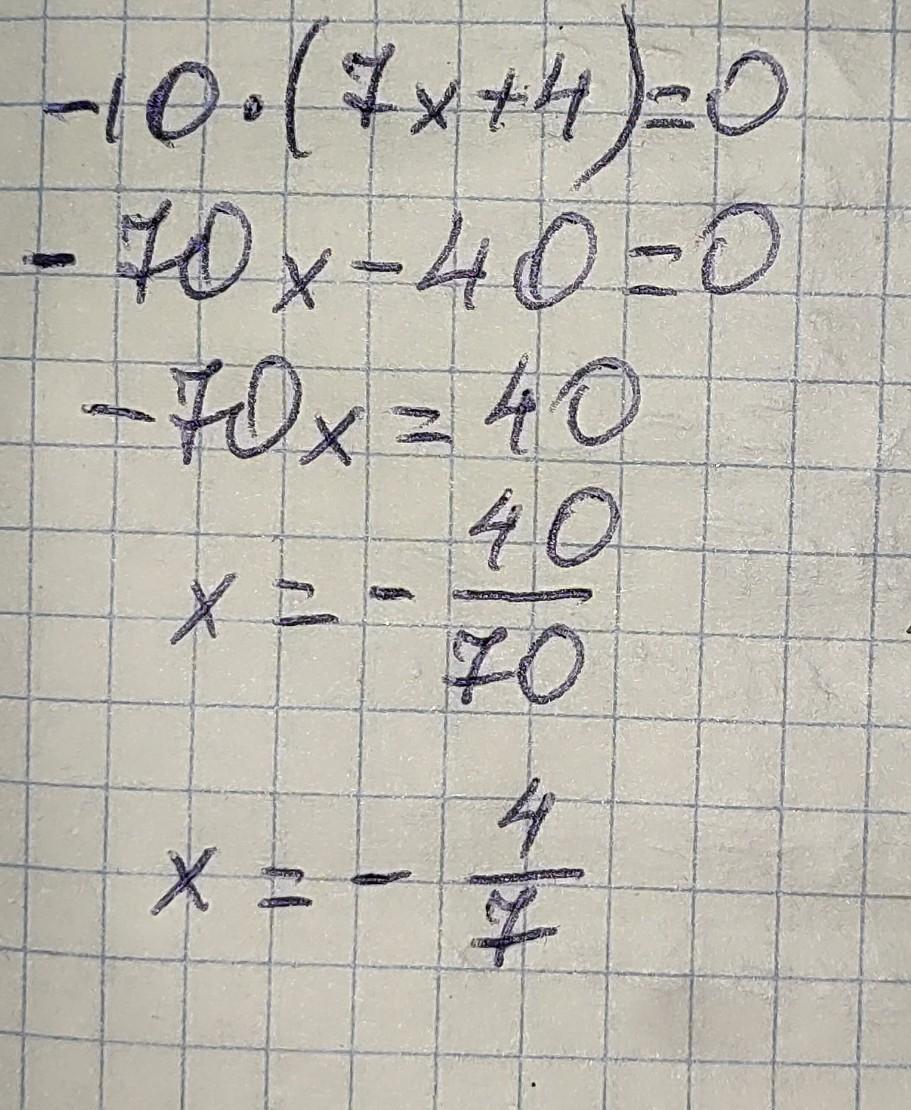 -10·(7x+4)=0
-70x-40=0
-70x=40
x=-40/70
x=-4/7